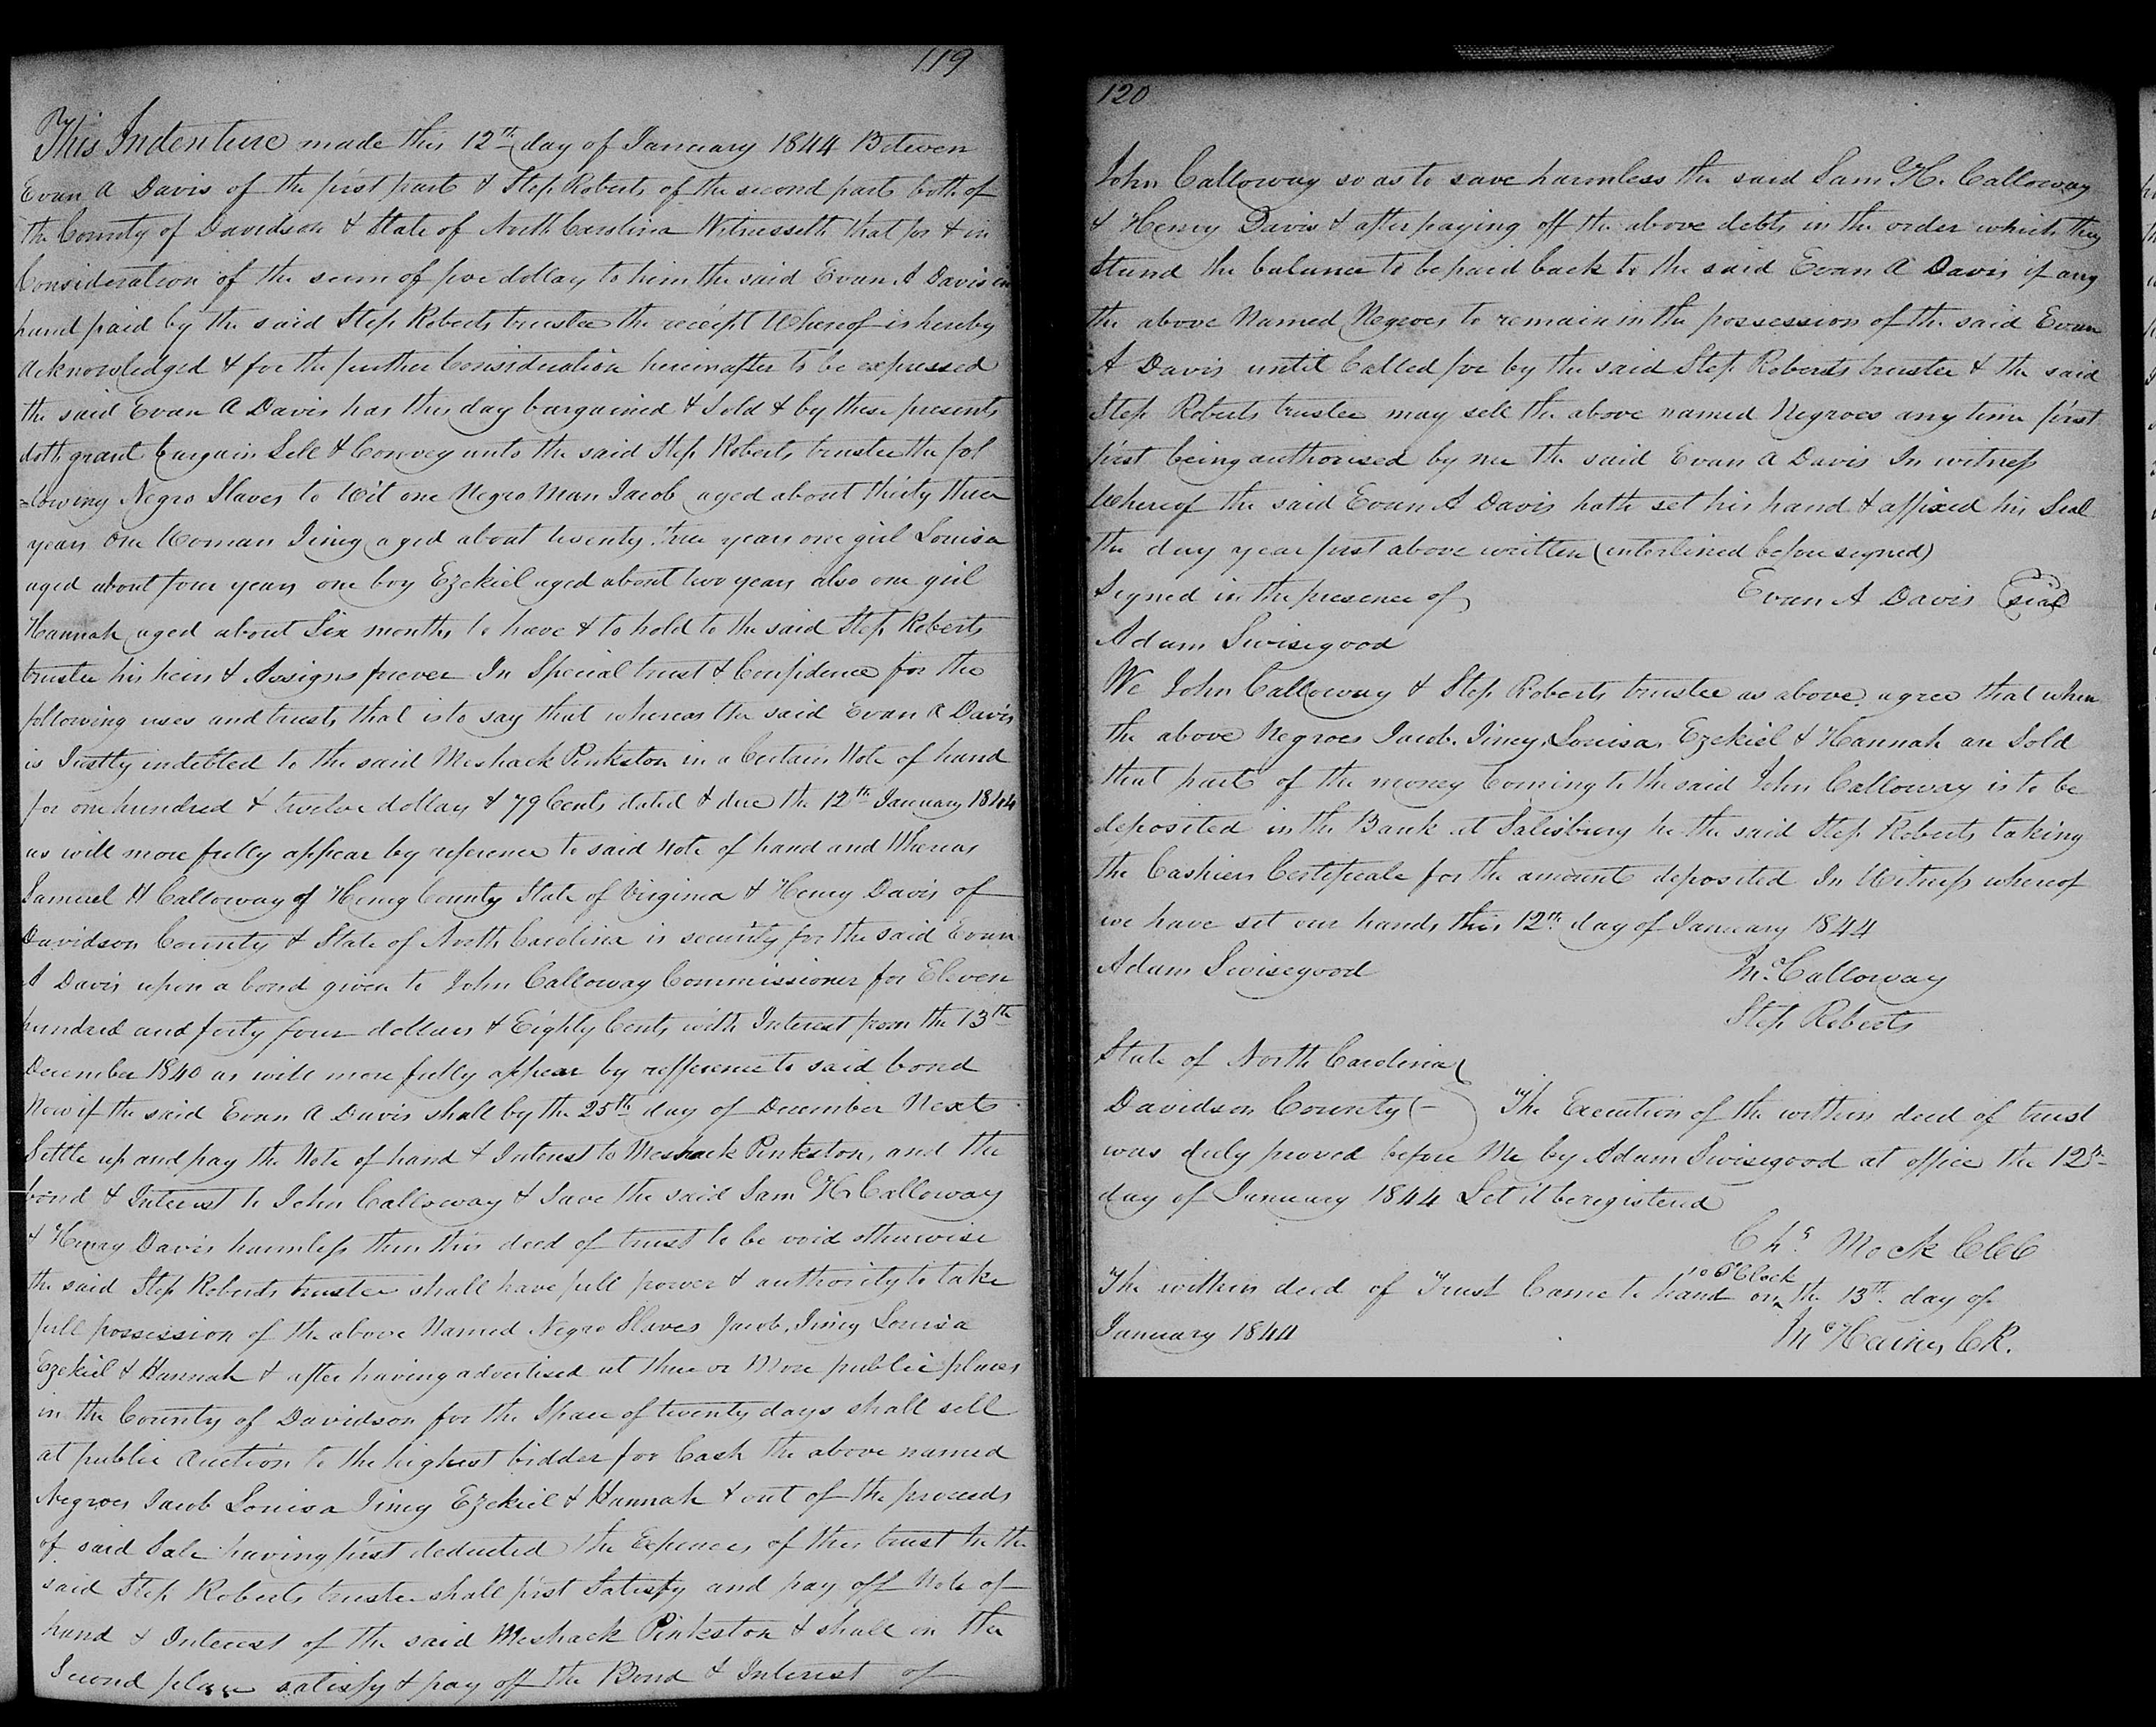 119
This Indenture made this 12th day of January 1844 Between
Evan A Davis of the first part & Step Roberts of the second part both of
the County of Davidson & State of North Carolina Witnesseth that for & in
Consideration of the sum of five dollars to him the said Evan A Davis in
hand paid by the said Step Roberts trustee the receipt Whereof is hereby
acknowledged & for the further Consideration hereinafter to be expressed
the said Evan A Davis has this day bargained & Sold & by these presents
doth grant bargain Sell & Convey unto the said Step Roberts trustee the fol
=lowing Negro Slaves to Wit one Negro Man Jacob aged about thirty three
years One Woman Jincy aged about twenty three years one girl Louisa
aged about four years one boy Ezekiel aged about two years also one girl
Hannah aged about Six months to have & to hold to the said Step Roberts
trustee his heirs & Assigns forever In Special trust & Confidence for the
following uses and trusts that is to say that whereas the said Evan A Davis
is Justly indebted to the said Meshack Pinkston in a Certain Note of hand
for one hundred & twelve dollars & 79 Cents dated & due the 12th January 1844
as will more fully appear by reference to said Note of hand and Whereas
Samuel H Calloway of Henry County State of Virginia & Henry Davis of
Davidson County & State of North Carolina is security for the said Evan
A Davis upon a bond given to John Calloway Commissioner for Eleven
hundred and forty four dollars & Eighty Cents with Interest from the 13th
December 1840 as will more fully appear by refference to said bond
Now if the said Evan A Davis shall by the 25th day of December Next
Settle up and pay the Note of hand & Interest to Meshack Pinkston, and the
bond & Interest to John Calloway & Save the said Sam H. Calloway
& Henry Davis harmless then this deed of trust to be void otherwise
the said Step Roberts trustee shall have full power & authority to take
full possession of the above Named Negro Slaves Jacob, Jincy Louisa
Ezekiel & Hannah & after having advertised at three or More public places
in the County of Davidson for the Space of twenty days shall sell
at public Auction to the highest bidder for Cash the above named
Negroes Jacob Louisa Jincy Ezekiel & Hannah & out of the proceeds
of said Sale having first deducted the Expences of this trust he the
said Step Roberts trustee shall first Satisfy and pay off Note of
hand & Interest of the said Meshack Pinkston & shall in the
Second place satisfy & pay off the Bond & Interest of
120
John Calloway so as to save harmless the said Sam H. Calloway
& Henry Davis & after paying off the above debts in the order which they
Stand the balance to be paid back to the said Evan A Davis if any
the above Named Negroes to remain in the possession of the said Evan
A Davis until Called for by the said Step Roberts trustee & the said
Step Roberts trustee may sell the above named Negroes any time first
first being authorised by me the said Evan A Davis In witness
Whereof the said Evan A Davis hath set his hand & affixed his Seal
the day year first above written (interlined before signed)
Signed in the presence of Evan A Davis Seal
Adam Swisegood
We John Calloway & Step Roberts trustee as above agree that when
the above Negroes Jacob, Jincy, Louisa, Ezekiel & Hannah are Sold
that part of the money Coming to the said John Calloway is to be
deposited in the Bank at Salisbury he the said Step Roberts taking
the Cashiers Certificate for the amount deposited In Witness whereof
we have set our hands this 12th day of January 1844
Adam Swisegood Jno Calloway
Step Roberts
State of North Carolina
Davidson County The Execution of the within deed of trust
was duly proved before Me by Adam Swisegood at office the 12th
day of January 1844 Let it be registered
Chs Mock CCC
The within deed of Trust Came to hand on 10 O'Clock the 13th day of
January 1844 Jno Haines CR.